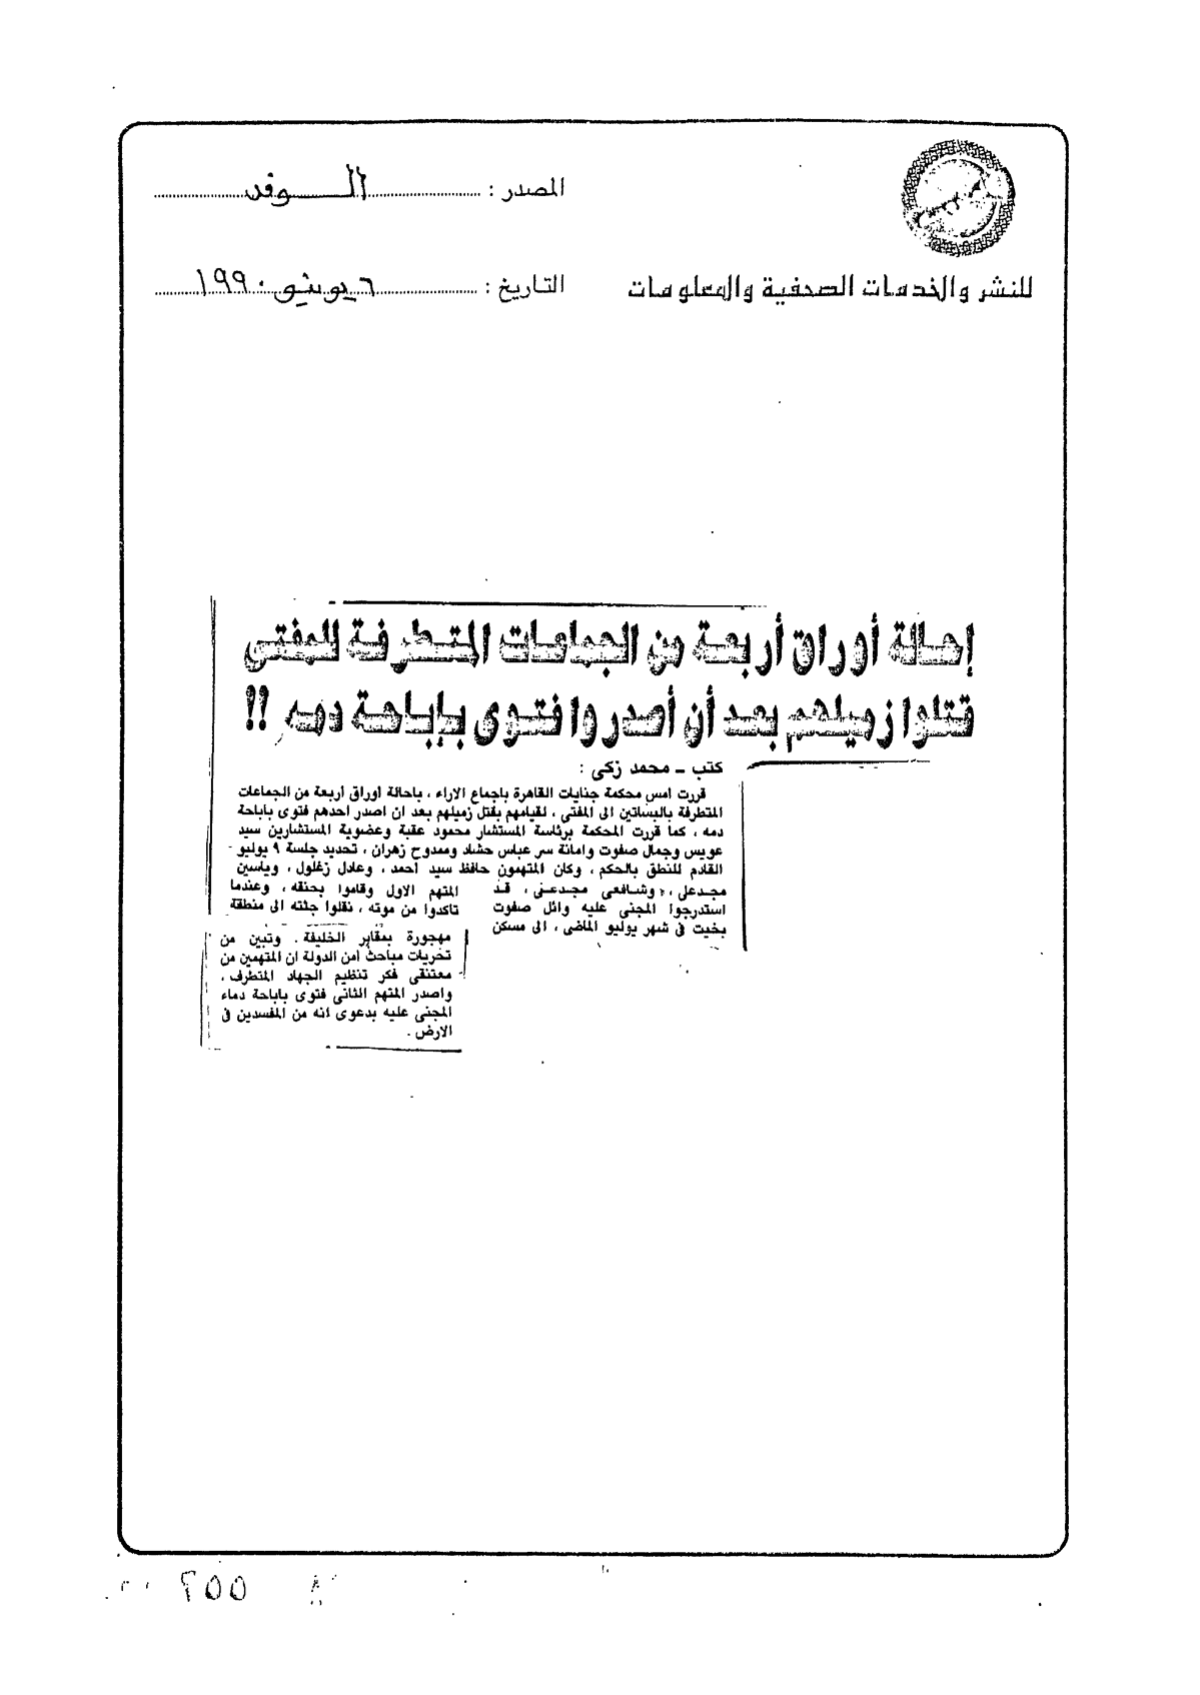 المصدر : الوفد
للنشر والخدمات الصحفية والمعلومات
التاريخ : ٦ يونيو ١٩٩٠
إحالة أوراق أربعة من الجماعات المتطرفة للمفتى
قتلوا زميلهم بعد أن أصدروا فتوى بإباحة دمه !!
كتب ـ محمد زكى :
قررت امس محكمة جنايات القاهرة باجماع الاراء ، باحالة اوراق اربعة من الجماعات
المتطرفة بالبساتين الى المفتى ، لقيامهم بقتل زميلهم بعد ان اصدر احدهم فتوى باباحة
دمه ، كما قررت المحكمة برئاسة المستشار محمود عقبة وعضوية المستشارين سيد
عويس وجمال صفوت وامانة سر عباس حشاد وممدوح زهران ، تحديد جلسة ٩ يوليو
القادم للنطق بالحكم ، وكان المتهمون حافظ سيد احمد ، وعادل زغلول ، وياسين
مجدعلى ، وشافعى مجدعنى ، قد
استدرجوا المجنى عليه وائل صفوت
بخيت فى شهر يوليو الماضى ، الى مسكن
المتهم الاول وقاموا بخنقه ، وعندما
تاكدوا من موته ، نقلوا جثته الى منطقة
مهجورة بمقابر الخليفة . وتبين من
تحريات مباحث امن الدولة ان المتهمين من
معتنقى فكر تنظيم الجهاد المتطرف ،
واصدر المتهم الثانى فتوى باباحة دماء
المجنى عليه بدعوى انه من المفسدين فى
الارض .
٢٥٥